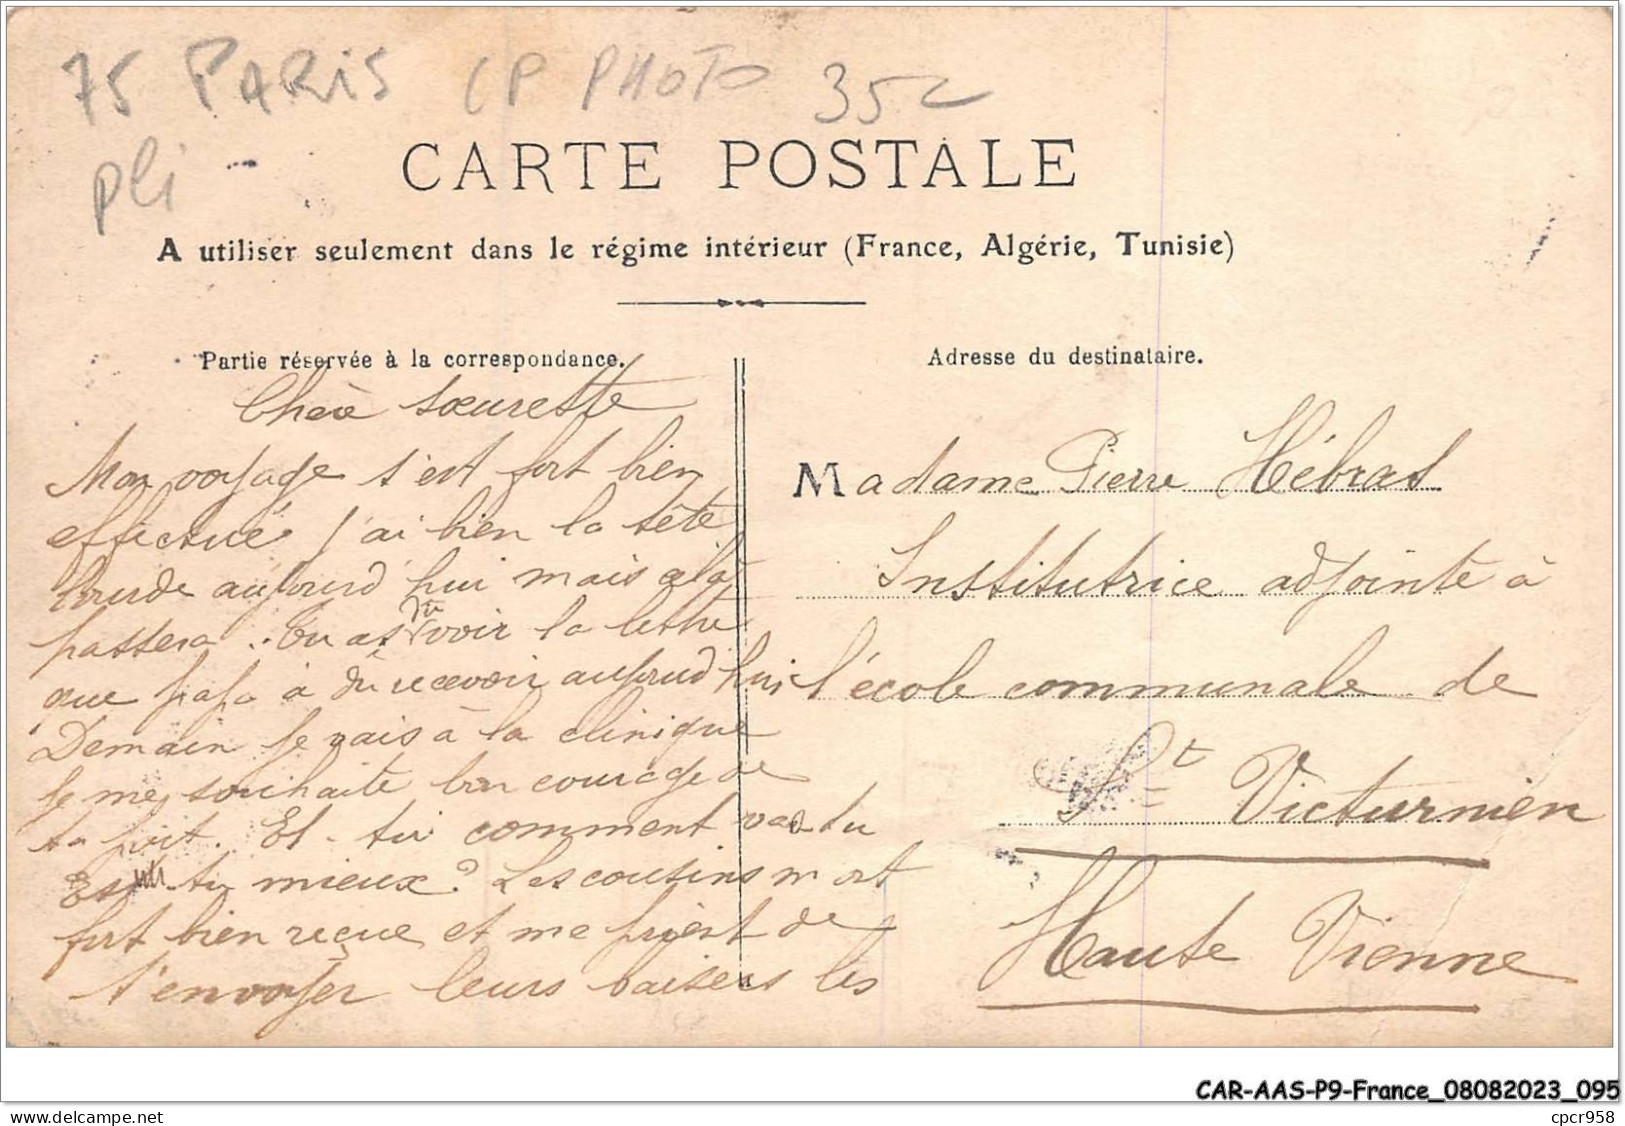 75 PARIS CP PHOTO 352
pli
CARTE POSTALE
A utiliser seulement dans le régime intérieur (France, Algérie, Tunisie)
Partie réservée à la correspondance.
Chère sœurette
Mon voyage s'est fort bien
effectué j'ai bien la tête
lourde aujourd'hui mais cela
passera. Tu as dû voir la lettre
que papa a dû recevoir aujourd'hui
Demain je vais à la clinique
je me souhaite bon courage de
ta part. Et toi comment vas-tu
Es tu mieux? Les cousins m'ont
fort bien reçue et me prient de
t'envoyer leurs baisers les
Adresse du destinataire.
Madame Pierre Hébras
Institutrice adjointe à
l'école communale de
St Victurnien
Haute Vienne
CAR-AAS-P9-France_08082023_095
cpcr958